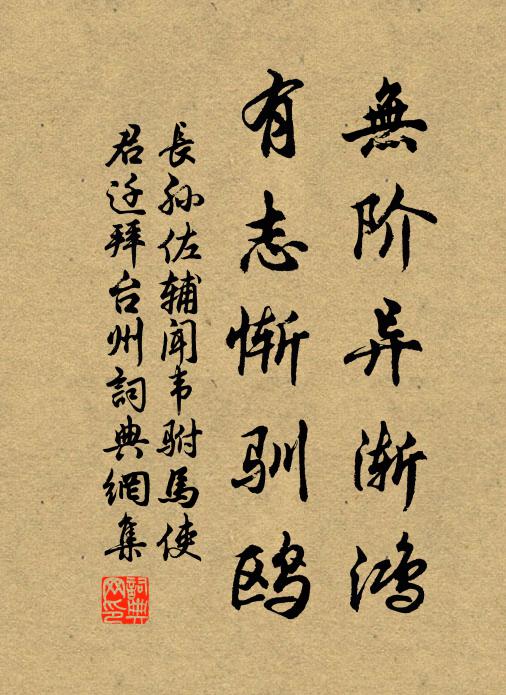 無阶异渐鸿
有志惭驯鸥
長孙佐辅闻韦驸馬使
君迁拜台州詞典網集